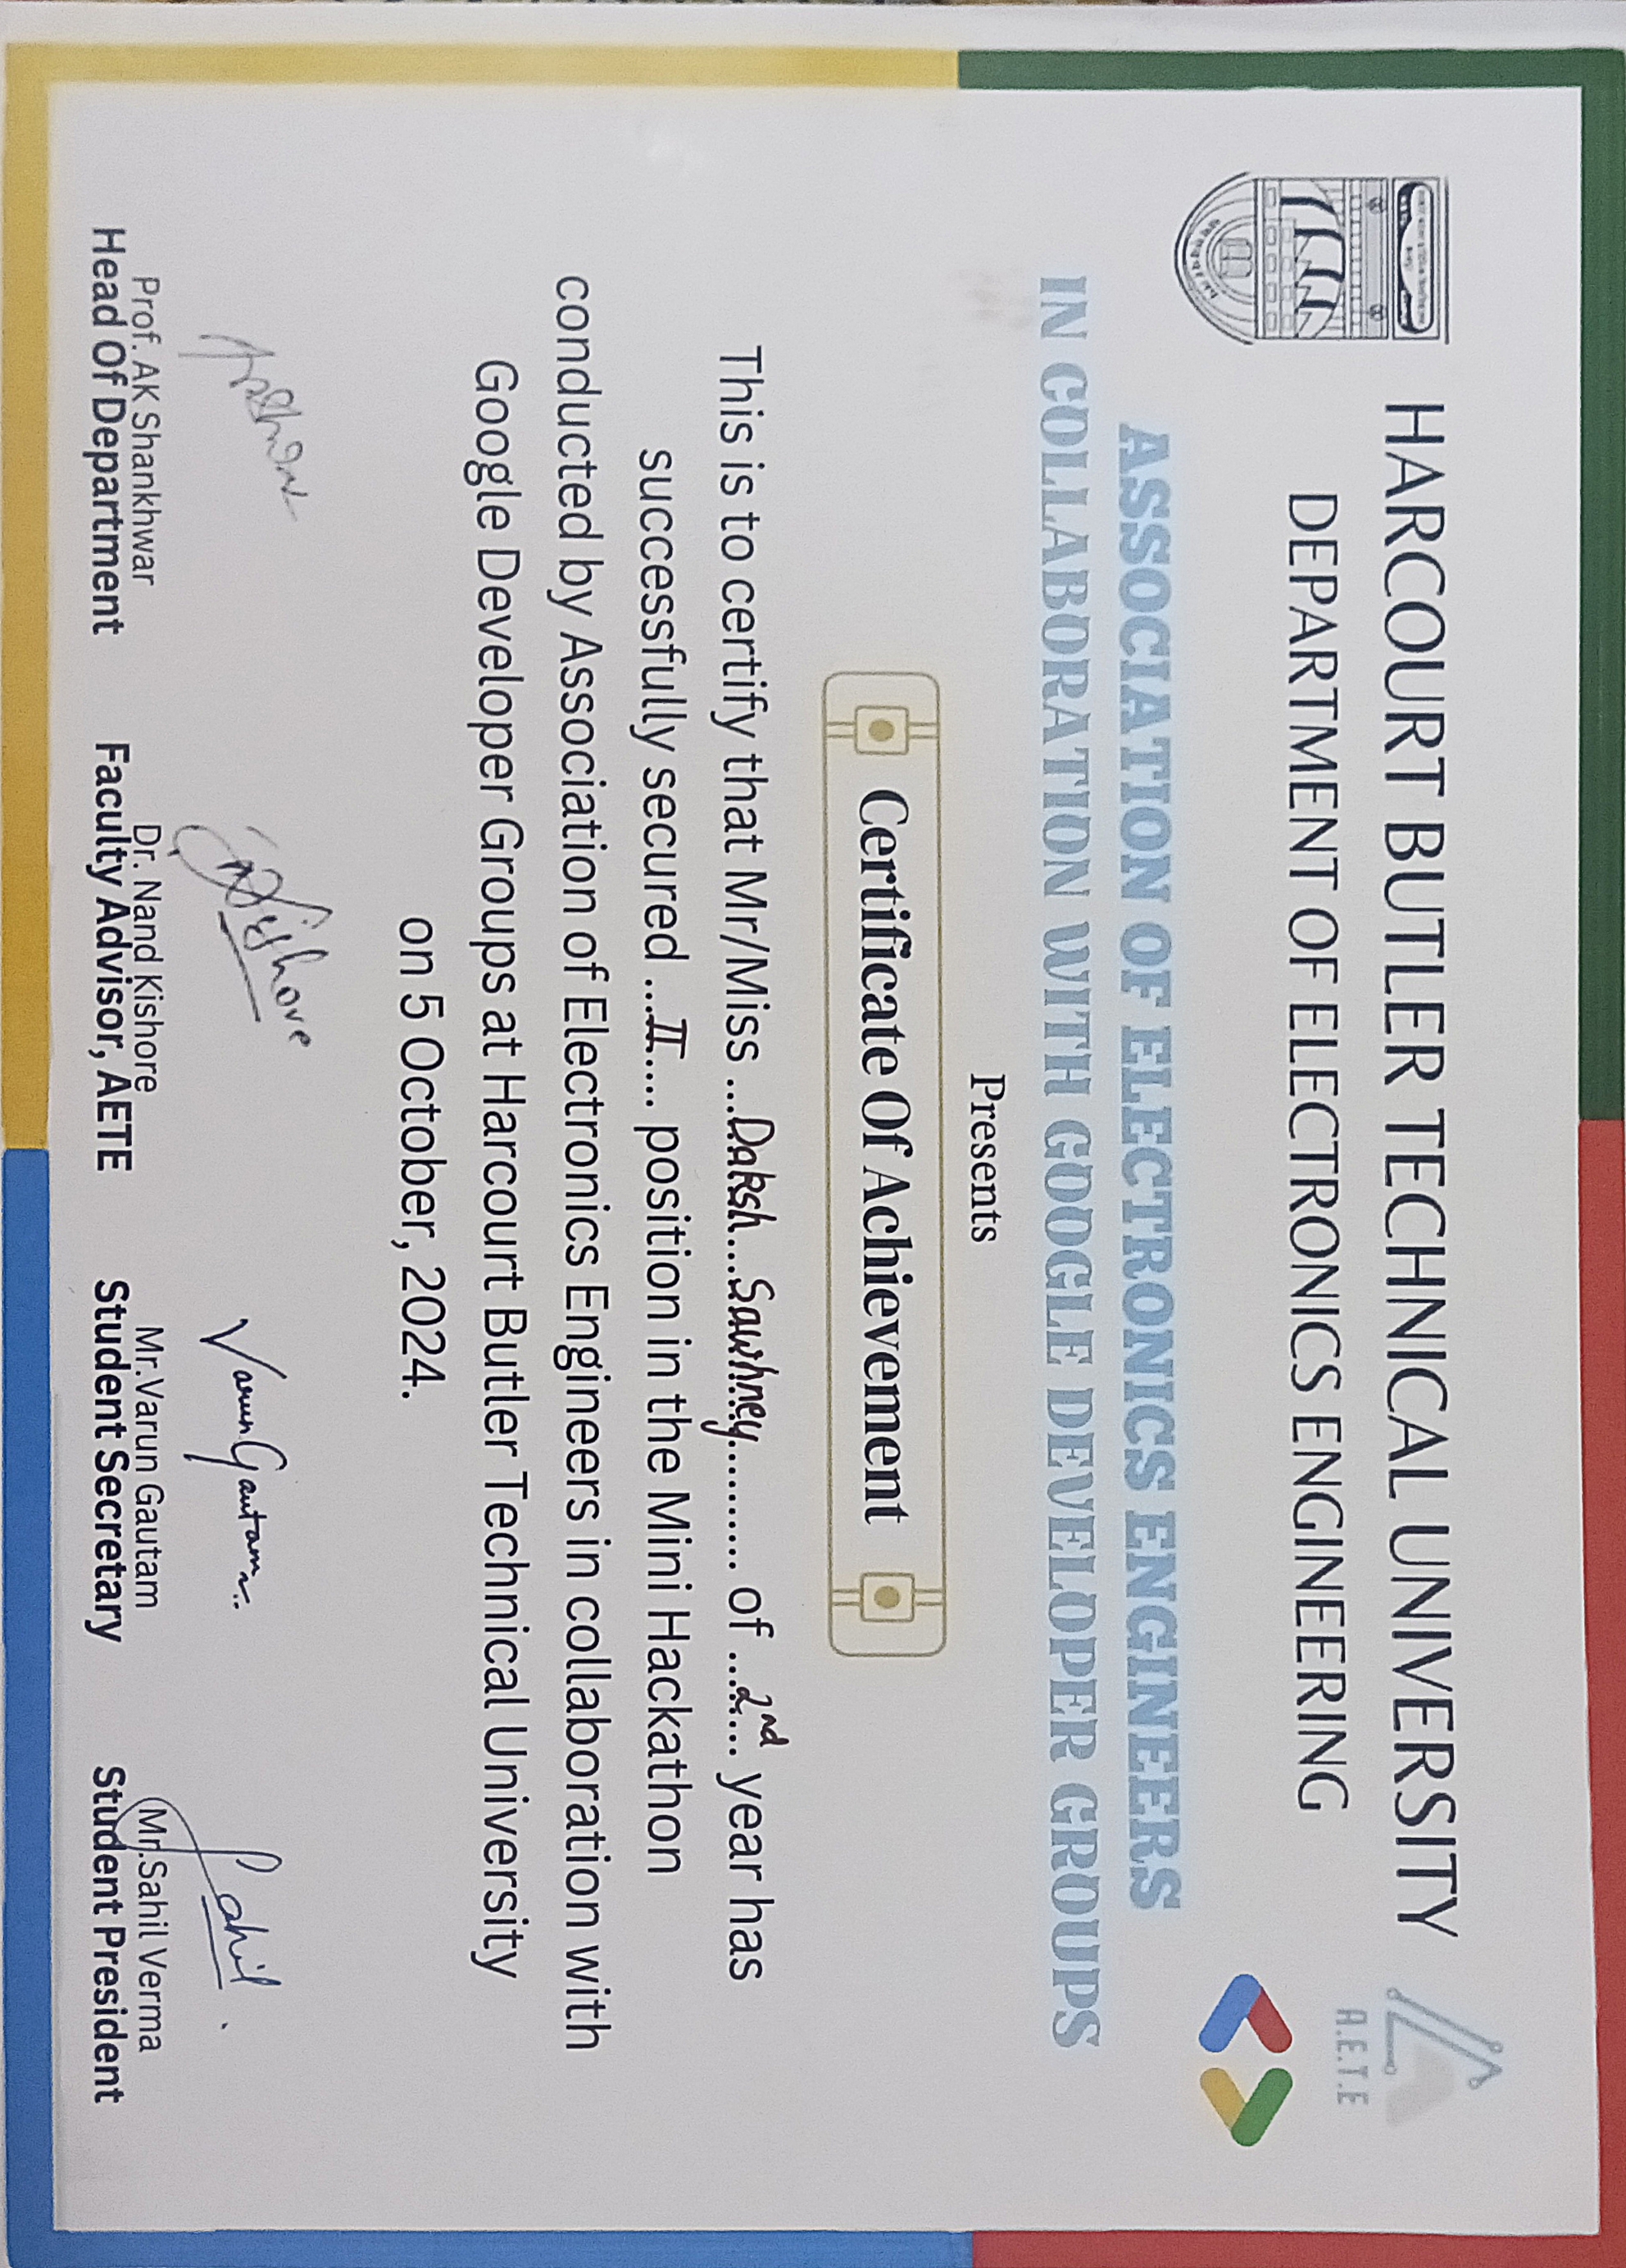 HARCOURT BUTLER TECHNICAL UNIVERSITY
DEPARTMENT OF ELECTRONICS ENGINEERING
A.E.T.E
ASSOCIATION OF ELECTRONICS ENGINEERS
IN COLLABORATION WITH GOOGLE DEVELOPER GROUPS
Presents
Certificate Of Achievement
This is to certify that Mr/Miss ...Daksh...Sawhney.......... of ...2nd... year has
successfully secured ...II.... position in the Mini Hackathon
conducted by Association of Electronics Engineers in collaboration with
Google Developer Groups at Harcourt Butler Technical University
on 5 October, 2024.
Kishore
Varun Gautam
Sahil
Prof. AK Shankhwar
Head Of Department
Dr. Nand Kishore
Faculty Advisor, AETE
Mr.Varun Gautam
Student Secretary
Mr.Sahil Verma
Student President